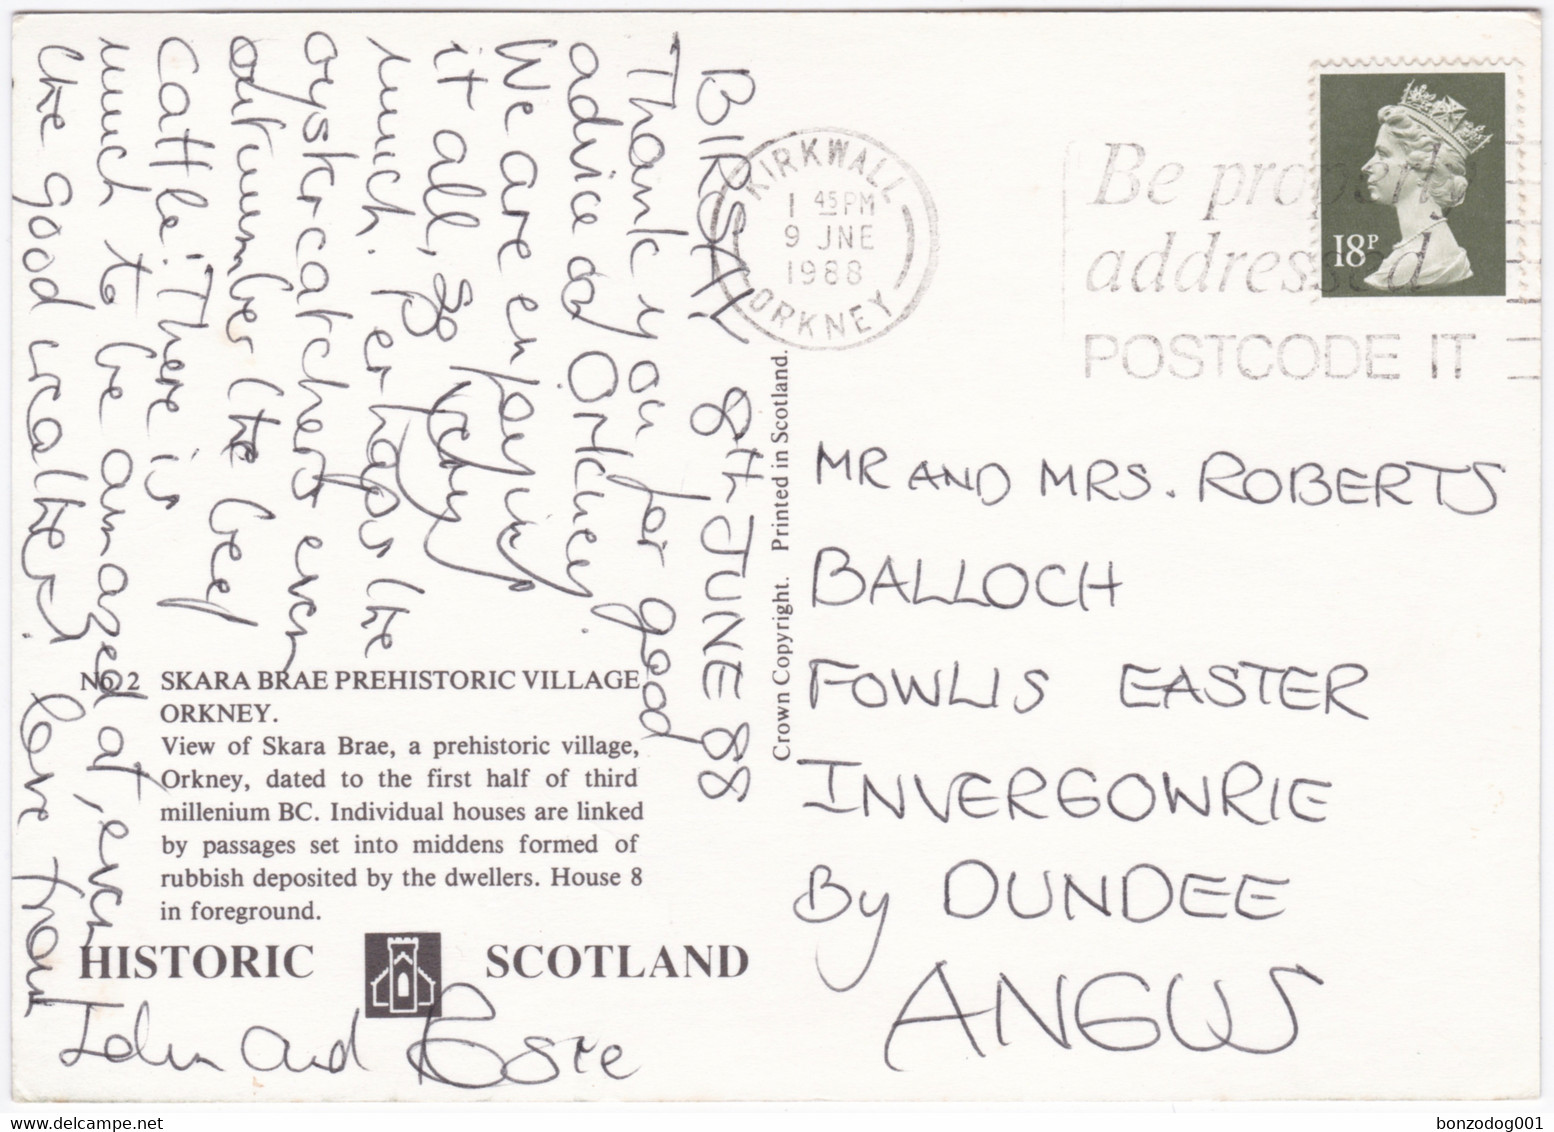 BIRSAY 8th JUNE 88
Thank you for good
advice on Orkney.
We are enjoying
it all, so very
much. Perhaps the
oystercatchers even
outnumber the beef
cattle! There is
much to be amazed at, even
the good weather! Love from
John and Rosie
No. 2 SKARA BRAE PREHISTORIC VILLAGE
ORKNEY.
View of Skara Brae, a prehistoric village,
Orkney, dated to the first half of third
millenium BC. Individual houses are linked
by passages set into middens formed of
rubbish deposited by the dwellers. House 8
in foreground.
HISTORIC SCOTLAND
Crown Copyright. Printed in Scotland.
KIRKWALL
1 45 PM
9 JNE
1988
ORKNEY
Be properly
addressed
POSTCODE IT
18P
MR AND MRS. ROBERTS
BALLOCH
FOWLIS EASTER
INVERGOWRIE
By DUNDEE
ANGUS
www.delcampe.net
bonzodog001